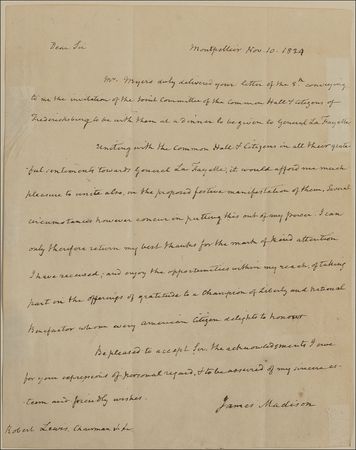 Dear Sir Montpellier Nov. 10. 1824
Mr. Myers duly delivered your letter of the 8th conveying
to me the invitation of the Joint Committee of the Common Hall & Citizens of
Fredericksburg to be with them at a dinner to be given to General La Fayette.
Uniting with the Common Hall & Citizens in all their grate-
ful sentiments towards General La Fayette, it would afford me much
pleasure to unite also, in the proposed festive manifestation of them. Several
circumstances however concur in putting this out of my power. I can
only therefore return my best thanks for the mark of kind attention
I have received; and enjoy the opportunities within my reach, of taking
part in the offerings of gratitude to a Champion of Liberty and national
Benefactor whom every American Citizen delights to honour
Be pleased to accept Sir, the acknowledgments I owe
for your expressions of personal regard, & to be assured of my sincere es-
teem and friendly wishes.
James Madison
Robert Lewis, Chairman